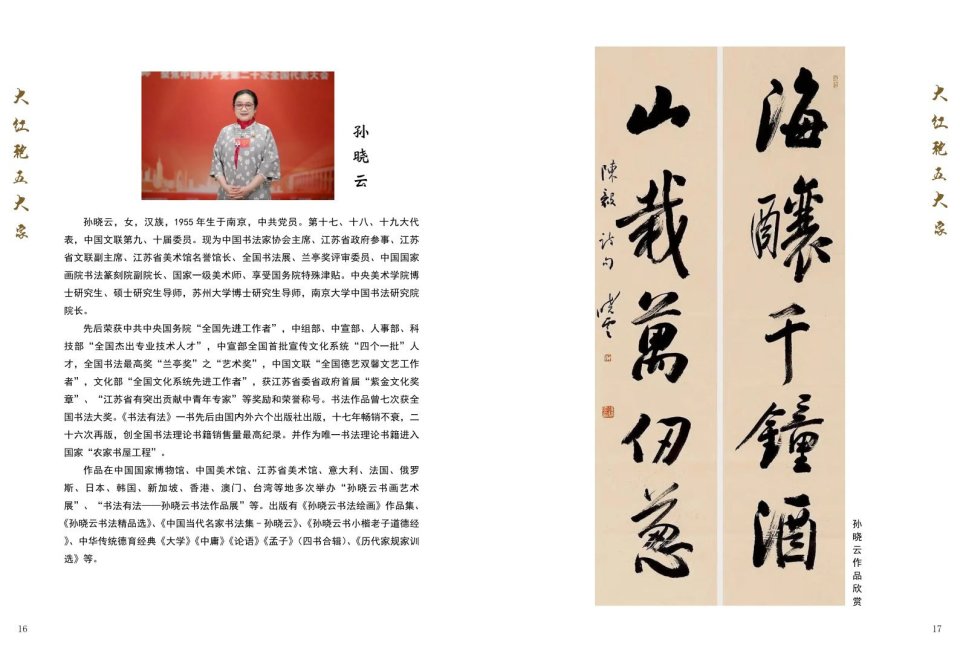 大红袍五大家
聚焦中国共产党第二十次全国代表大会
孙晓云
孙晓云，女，汉族，1955年生于南京，中共党员。第十七、十八、十九大代
表，中国文联第九、十届委员。现为中国书法家协会主席、江苏省政府参事、江苏
省文联副主席、江苏省美术馆名誉馆长、全国书法展、兰亭奖评审委员、中国国家
画院书法篆刻院副院长、国家一级美术师、享受国务院特殊津贴。中央美术学院博
士研究生、硕士研究生导师，苏州大学博士研究生导师，南京大学中国书法研究院
院长。
先后荣获中共中央国务院“全国先进工作者”，中组部、中宣部、人事部、科
技部“全国杰出专业技术人才”，中宣部全国首批宣传文化系统“四个一批”人
才，全国书法最高奖“兰亭奖”之“艺术奖”，中国文联“全国德艺双馨文艺工作
者”，文化部“全国文化系统先进工作者”，获江苏省委省政府首届“紫金文化奖
章”、“江苏省有突出贡献中青年专家”等奖励和荣誉称号。书法作品曾七次获全
国书法大奖。《书法有法》一书先后由国内外六个出版社出版，十七年畅销不衰，二
十六次再版，创全国书法理论书籍销售量最高纪录。并作为唯一书法理论书籍进入
国家“农家书屋工程”。
作品在中国国家博物馆、中国美术馆、江苏省美术馆、意大利、法国、俄罗
斯、日本、韩国、新加坡、香港、澳门、台湾等地多次举办“孙晓云书画艺术
展”、“书法有法——孙晓云书法作品展”等。出版有《孙晓云书法绘画》作品集、
《孙晓云书法精品选》、《中国当代名家书法集–孙晓云》、《孙晓云书小楷老子道德经
》、中华传统德育经典《大学》《中庸》《论语》《孟子》（四书合辑）、《历代家规家训
选》等。
16
海釀千鐘酒
山栽萬仞葱
陳毅詩句 晓雲
孙晓云作品欣赏
大红袍五大家
17